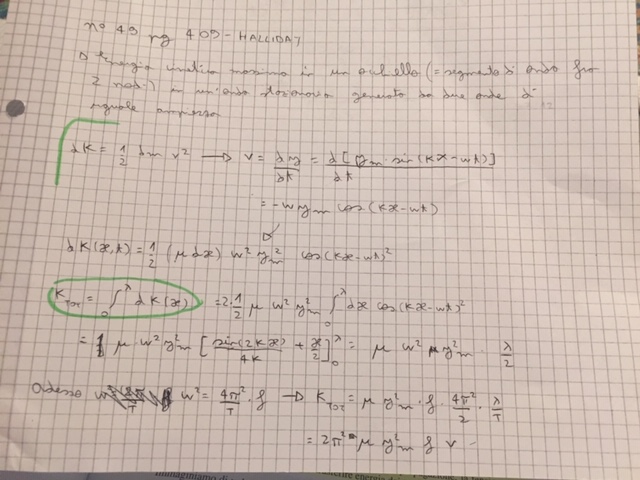 n° 49 pg 409 - HALLIDAY
Energia cinetica massima in un anello (= segmento di onda fra
2 nodi) in un'onda stazionaria generata da due onde di
uguale ampiezza
dK = 1/2 dm v² → v = dy/dt = d[ym · sin(kx - wt)]/dt
= -w ym cos(kx - wt)
dK(x,t) = 1/2 (μ dx) w² y²m cos(kx - wt)²
K_TOT = ∫₀^λ dK(x) = 2·1/2 μ w² y²m ∫₀^λ dx cos(kx - wt)²
= 1 μ w² y²m [sin(2kx)/4k + x/2]₀^λ = μ w² μ y²m · λ/2
Adesso w² = 4π²/T · f → K_TOT = μ y²m · f · 4π²/2 · λ/T
= 2π² μ y²m f v